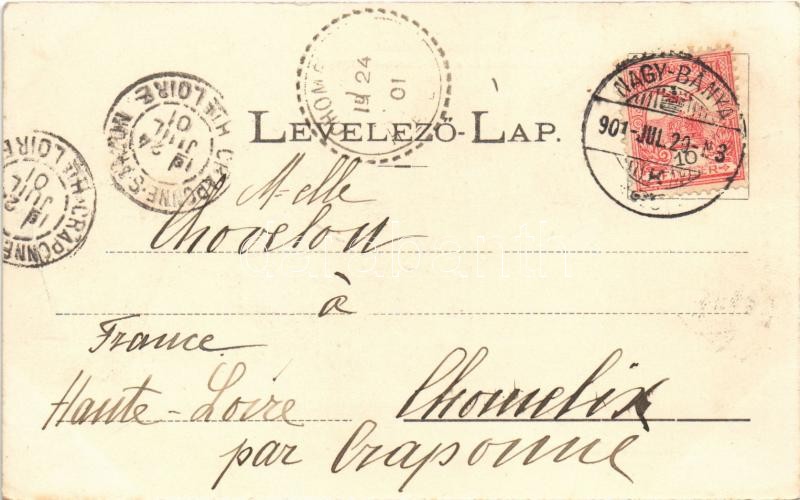 LEVELEZŐ-LAP.
NAGY-BÁNYA
901-JUL.20-
10
24
19
01
CRAPONNE-S-
Hte LOIRE
24
JUIL
01
CRAPONNE
Hte LOIRE
JUIL
01
M-elle
Chovelon
à
France
Haute-Loire Chomelix
par Craponne